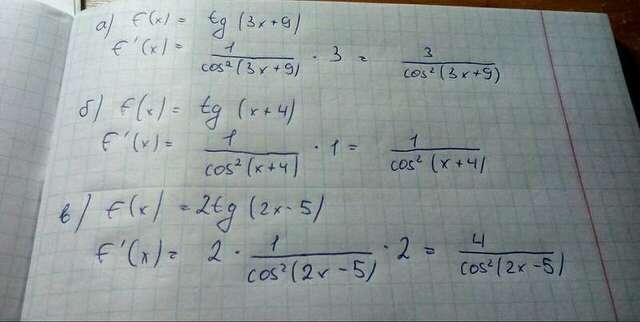 а) f(x) = tg (3x+9)
f'(x) = 1/cos²(3x+9) · 3 = 3/cos²(3x+9)
б) f(x) = tg (x+4)
f'(x) = 1/cos²(x+4) · 1 = 1/cos²(x+4)
в) f(x) = 2tg (2x-5)
f'(x) = 2 · 1/cos²(2x-5) · 2 = 4/cos²(2x-5)